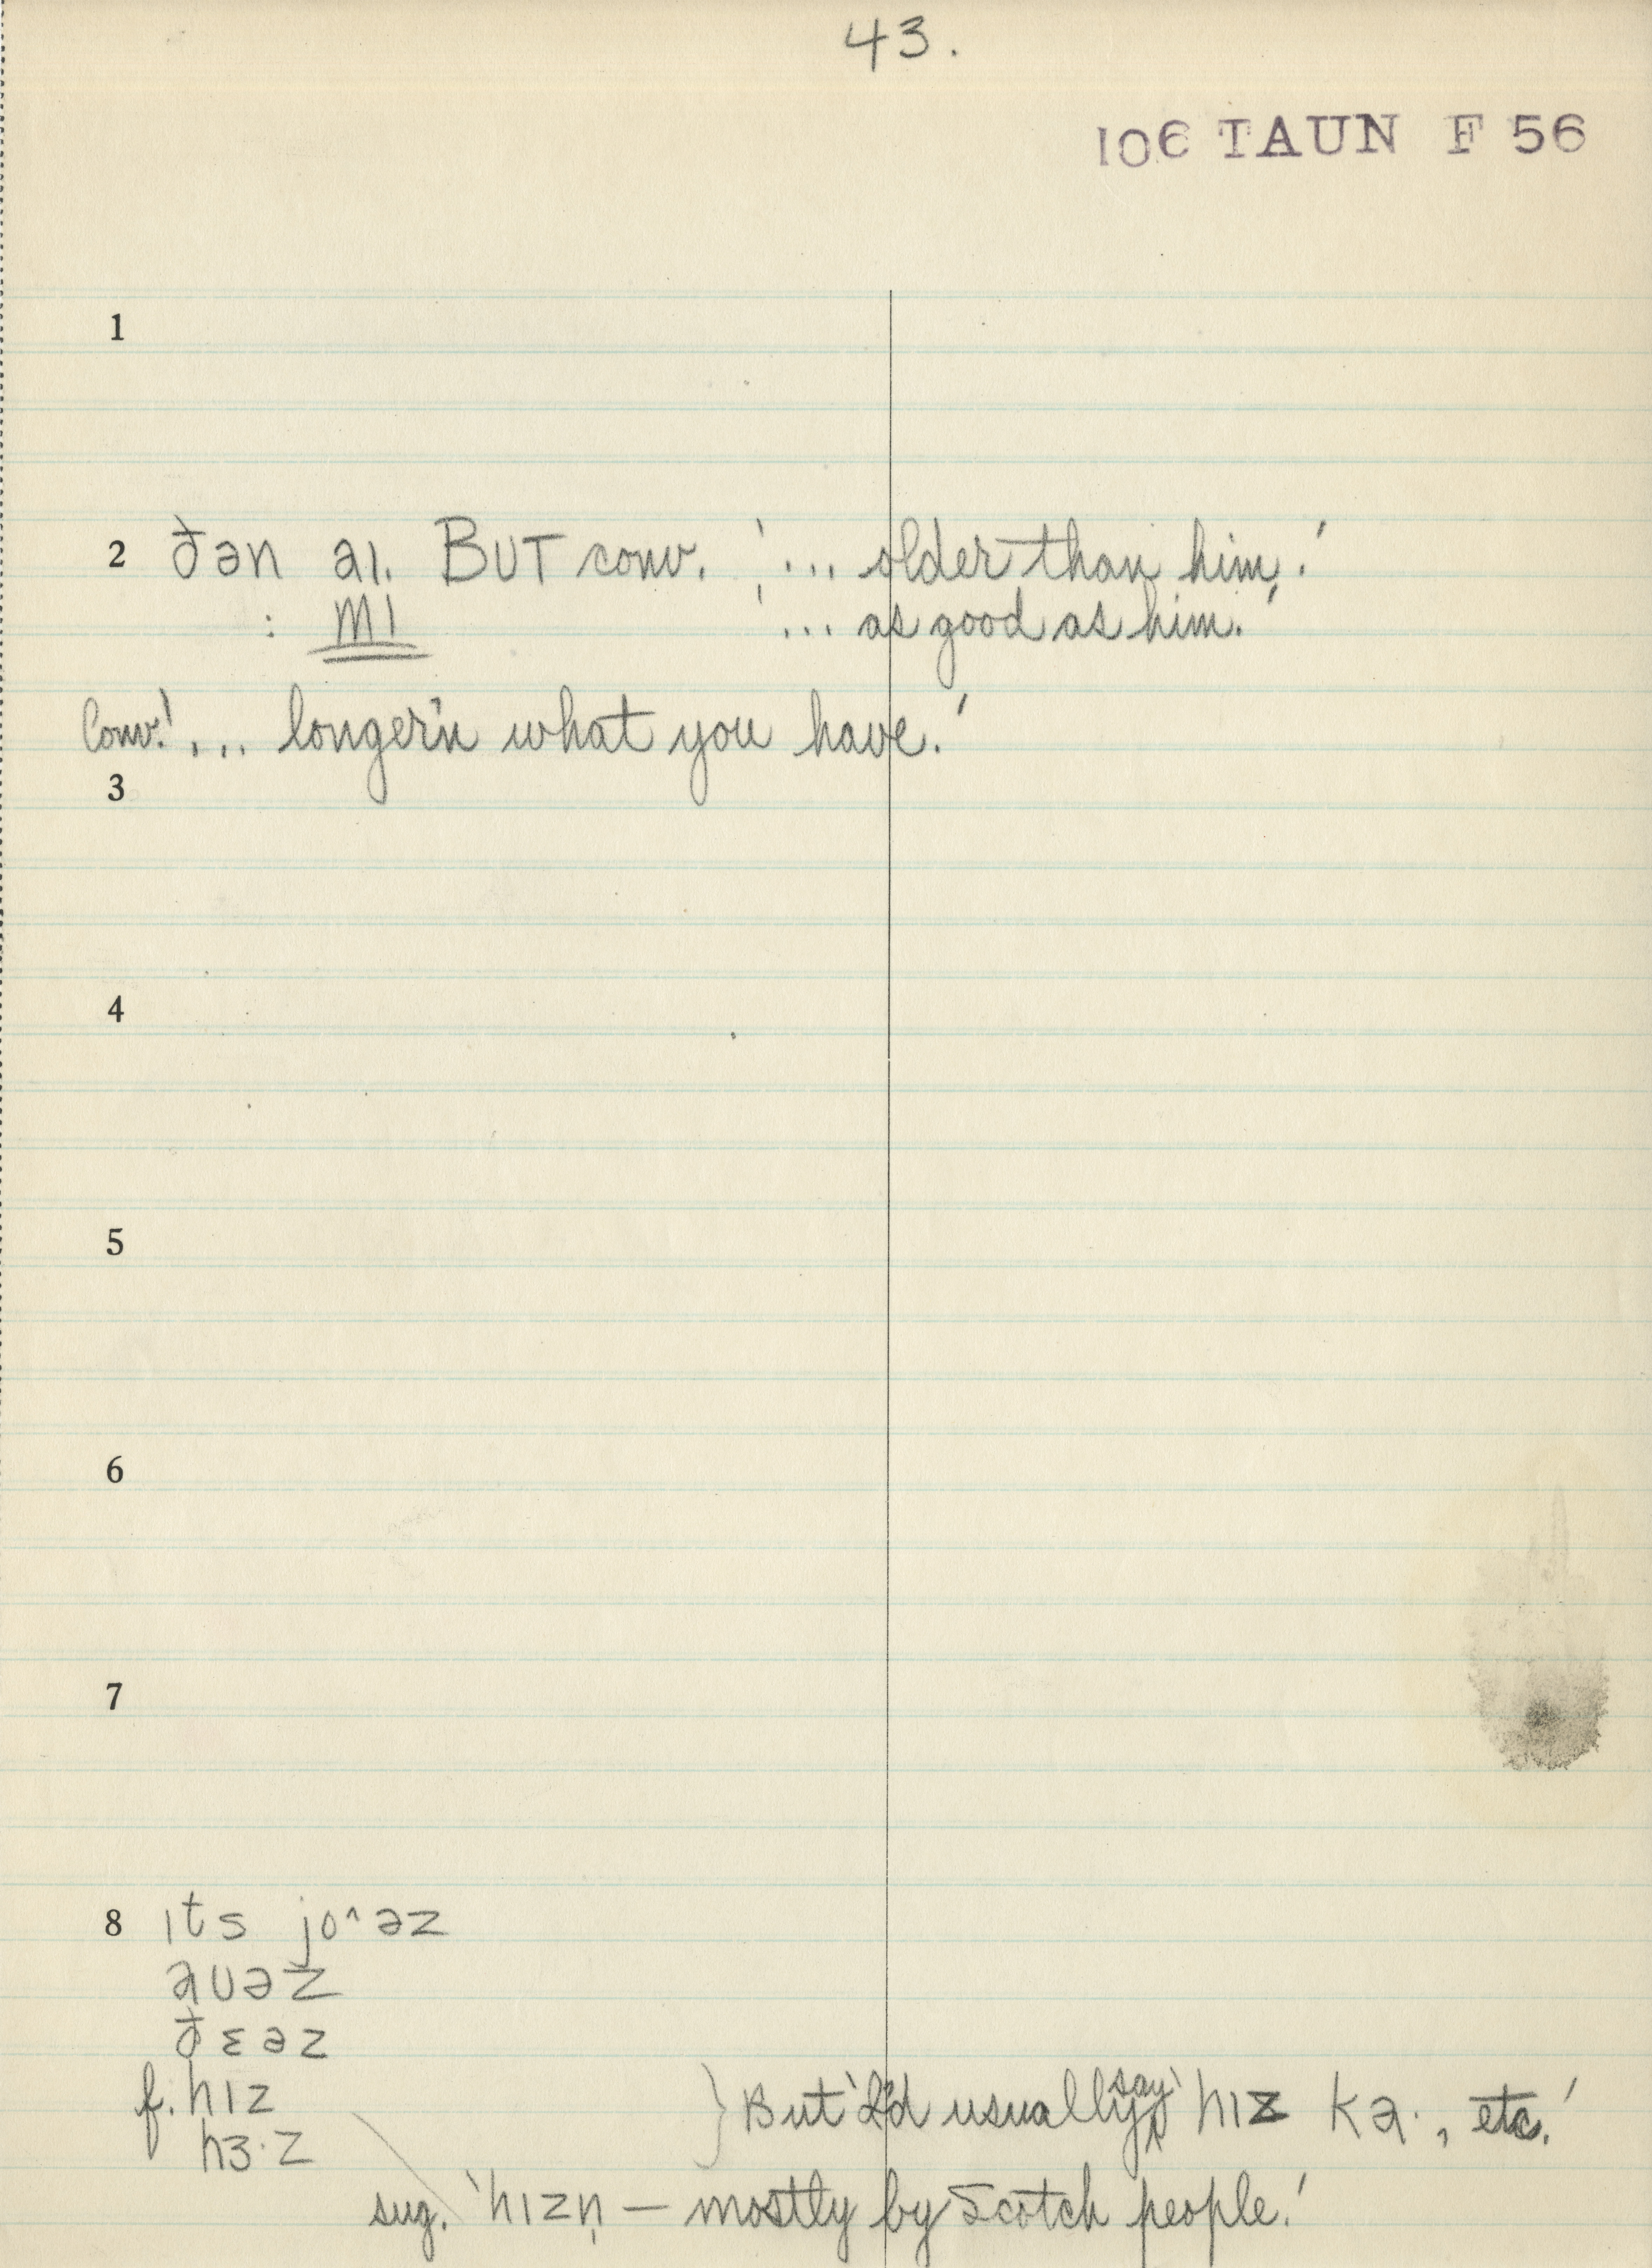 43.
106 TAUN F 56
1
2 ðən aɪ. BUT conv. '... older than him.'
: mɪ '... as good as him.'
Conv. '... longer'n what you have.'
3
4
5
6
7
8 ɪts jo^əz
aʊəz
ðɛəz
f. hɪz } But 'I'd usually say' hɪz ka·, etc.'
hɜ·z
sug. 'hɪzn̩ — mostly by Scotch people.'